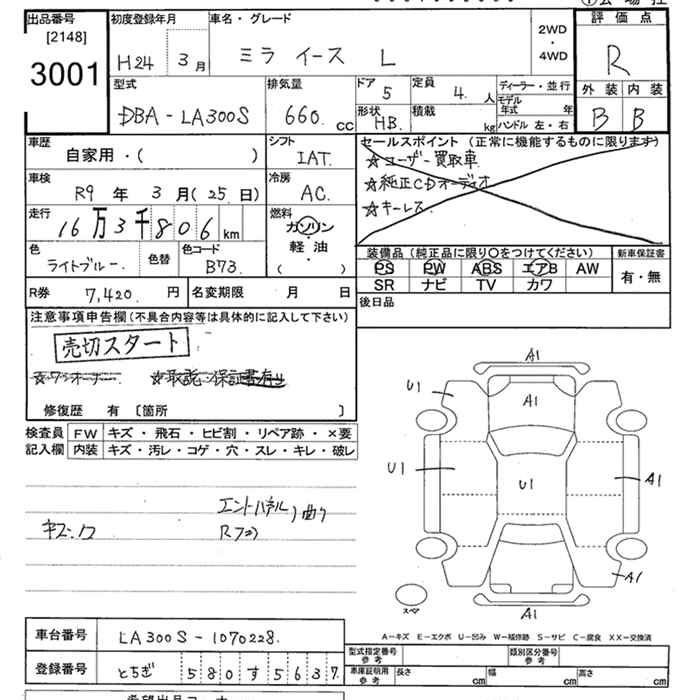 出品番号
[2148]
3001
初度登録年月
H24 3月
車名・グレード
ミラ イース L
2WD
・
4WD
評価点
R
外装 内装
B B
型式
DBA-LA300S
排気量
660. cc
ドア
5
定員
4. 人
形状
HB.
積載
kg
ディーラー・並行
モデル年式 年
ハンドル 左・右
車歴
自家用・( )
シフト
IAT.
車検
R9 年 3 月(25 日)
冷房
AC.
走行
16万3千806 km
燃料
ガソリン
・
軽油
( )
色
ライトブルー.
色替
色コード
B73.
セールスポイント (正常に機能するものに限ります)
☆ユーザー買取車
☆純正CDオーディオ
☆キーレス
装備品(純正品に限り〇をつけてください)
PS PW ABS エアB AW
SR ナビ TV カワ
新車保証書
有・無
R券 7,420. 円
名変期限 月 日
後日品
注意事項申告欄(不具合内容等は具体的に記入して下さい)
売切スタート
☆ワンオーナー. ☆取説・保証書有り
修復歴 有 〔箇所 〕
検査員記入欄
FW キズ・飛石・ヒビ割・リペア跡・×要
内装 キズ・汚レ・コゲ・穴・スレ・キレ・破レ
エンドパネル
Rフロ
曲り
A1
U1
A1
U1
U1
A1
A1
A1
スペア
A-キズ E-エクボ U-凹み W-補修跡 S-サビ C-腐食 XX-交換済
車台番号 LA300S-1070228.
登録番号 とちぎ 580す5637.
型式指定番号
参考
類別区分番号
参考
車庫証明用
参考
長さ cm
幅 cm
高さ cm